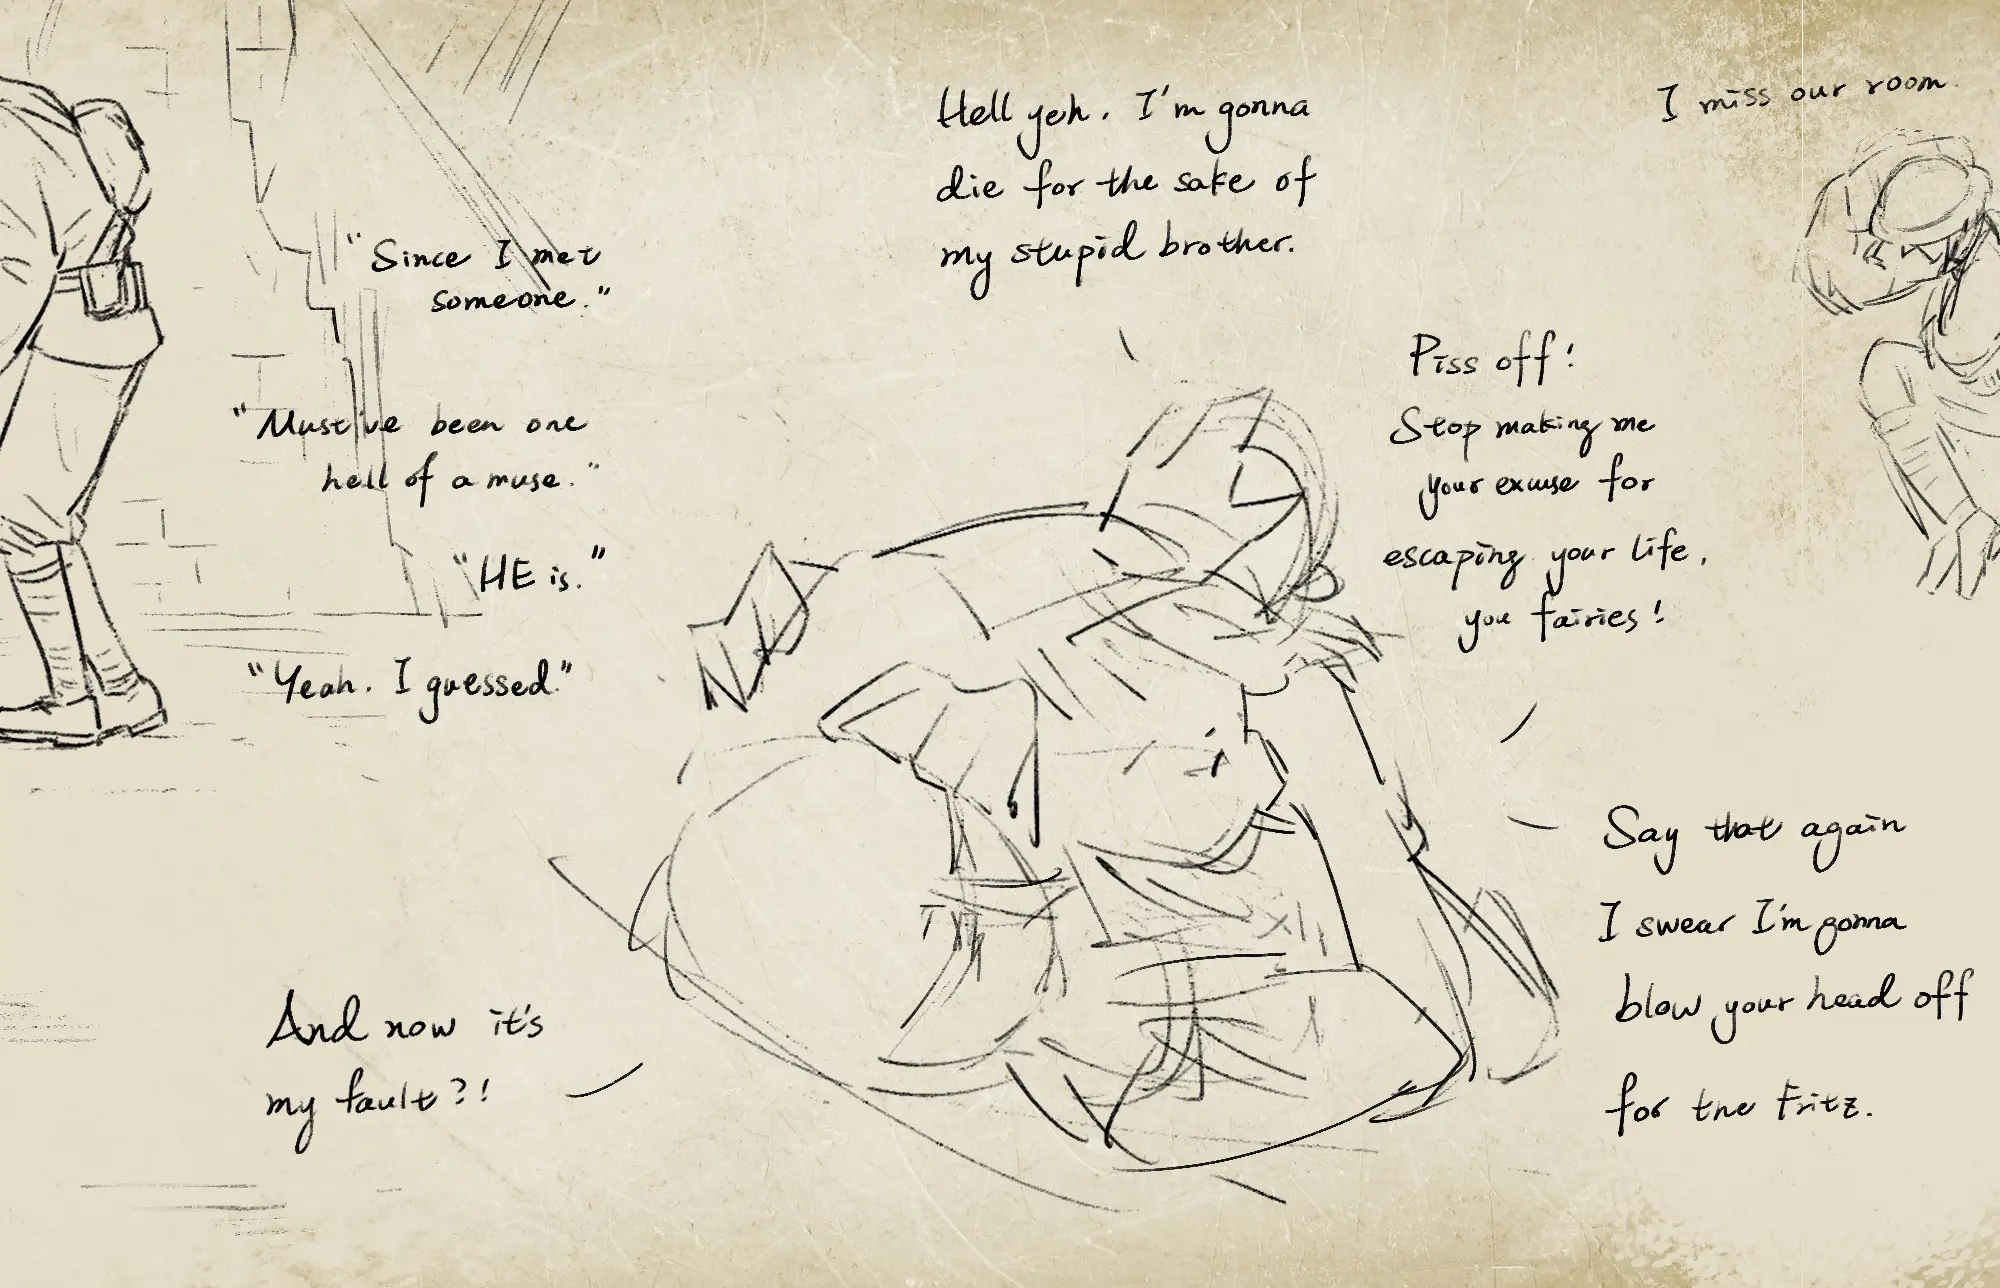 "Since I met
someone."
"Must've been one
hell of a muse."
"HE is."
"Yeah. I guessed."
Hell yeh. I'm gonna
die for the sake of
my stupid brother.
I miss our room.
Piss off!
Stop making me
your excuse for
escaping your life,
you fairies!
And now it's
my fault?!
Say that again
I swear I'm gonna
blow your head off
for the Fritz.